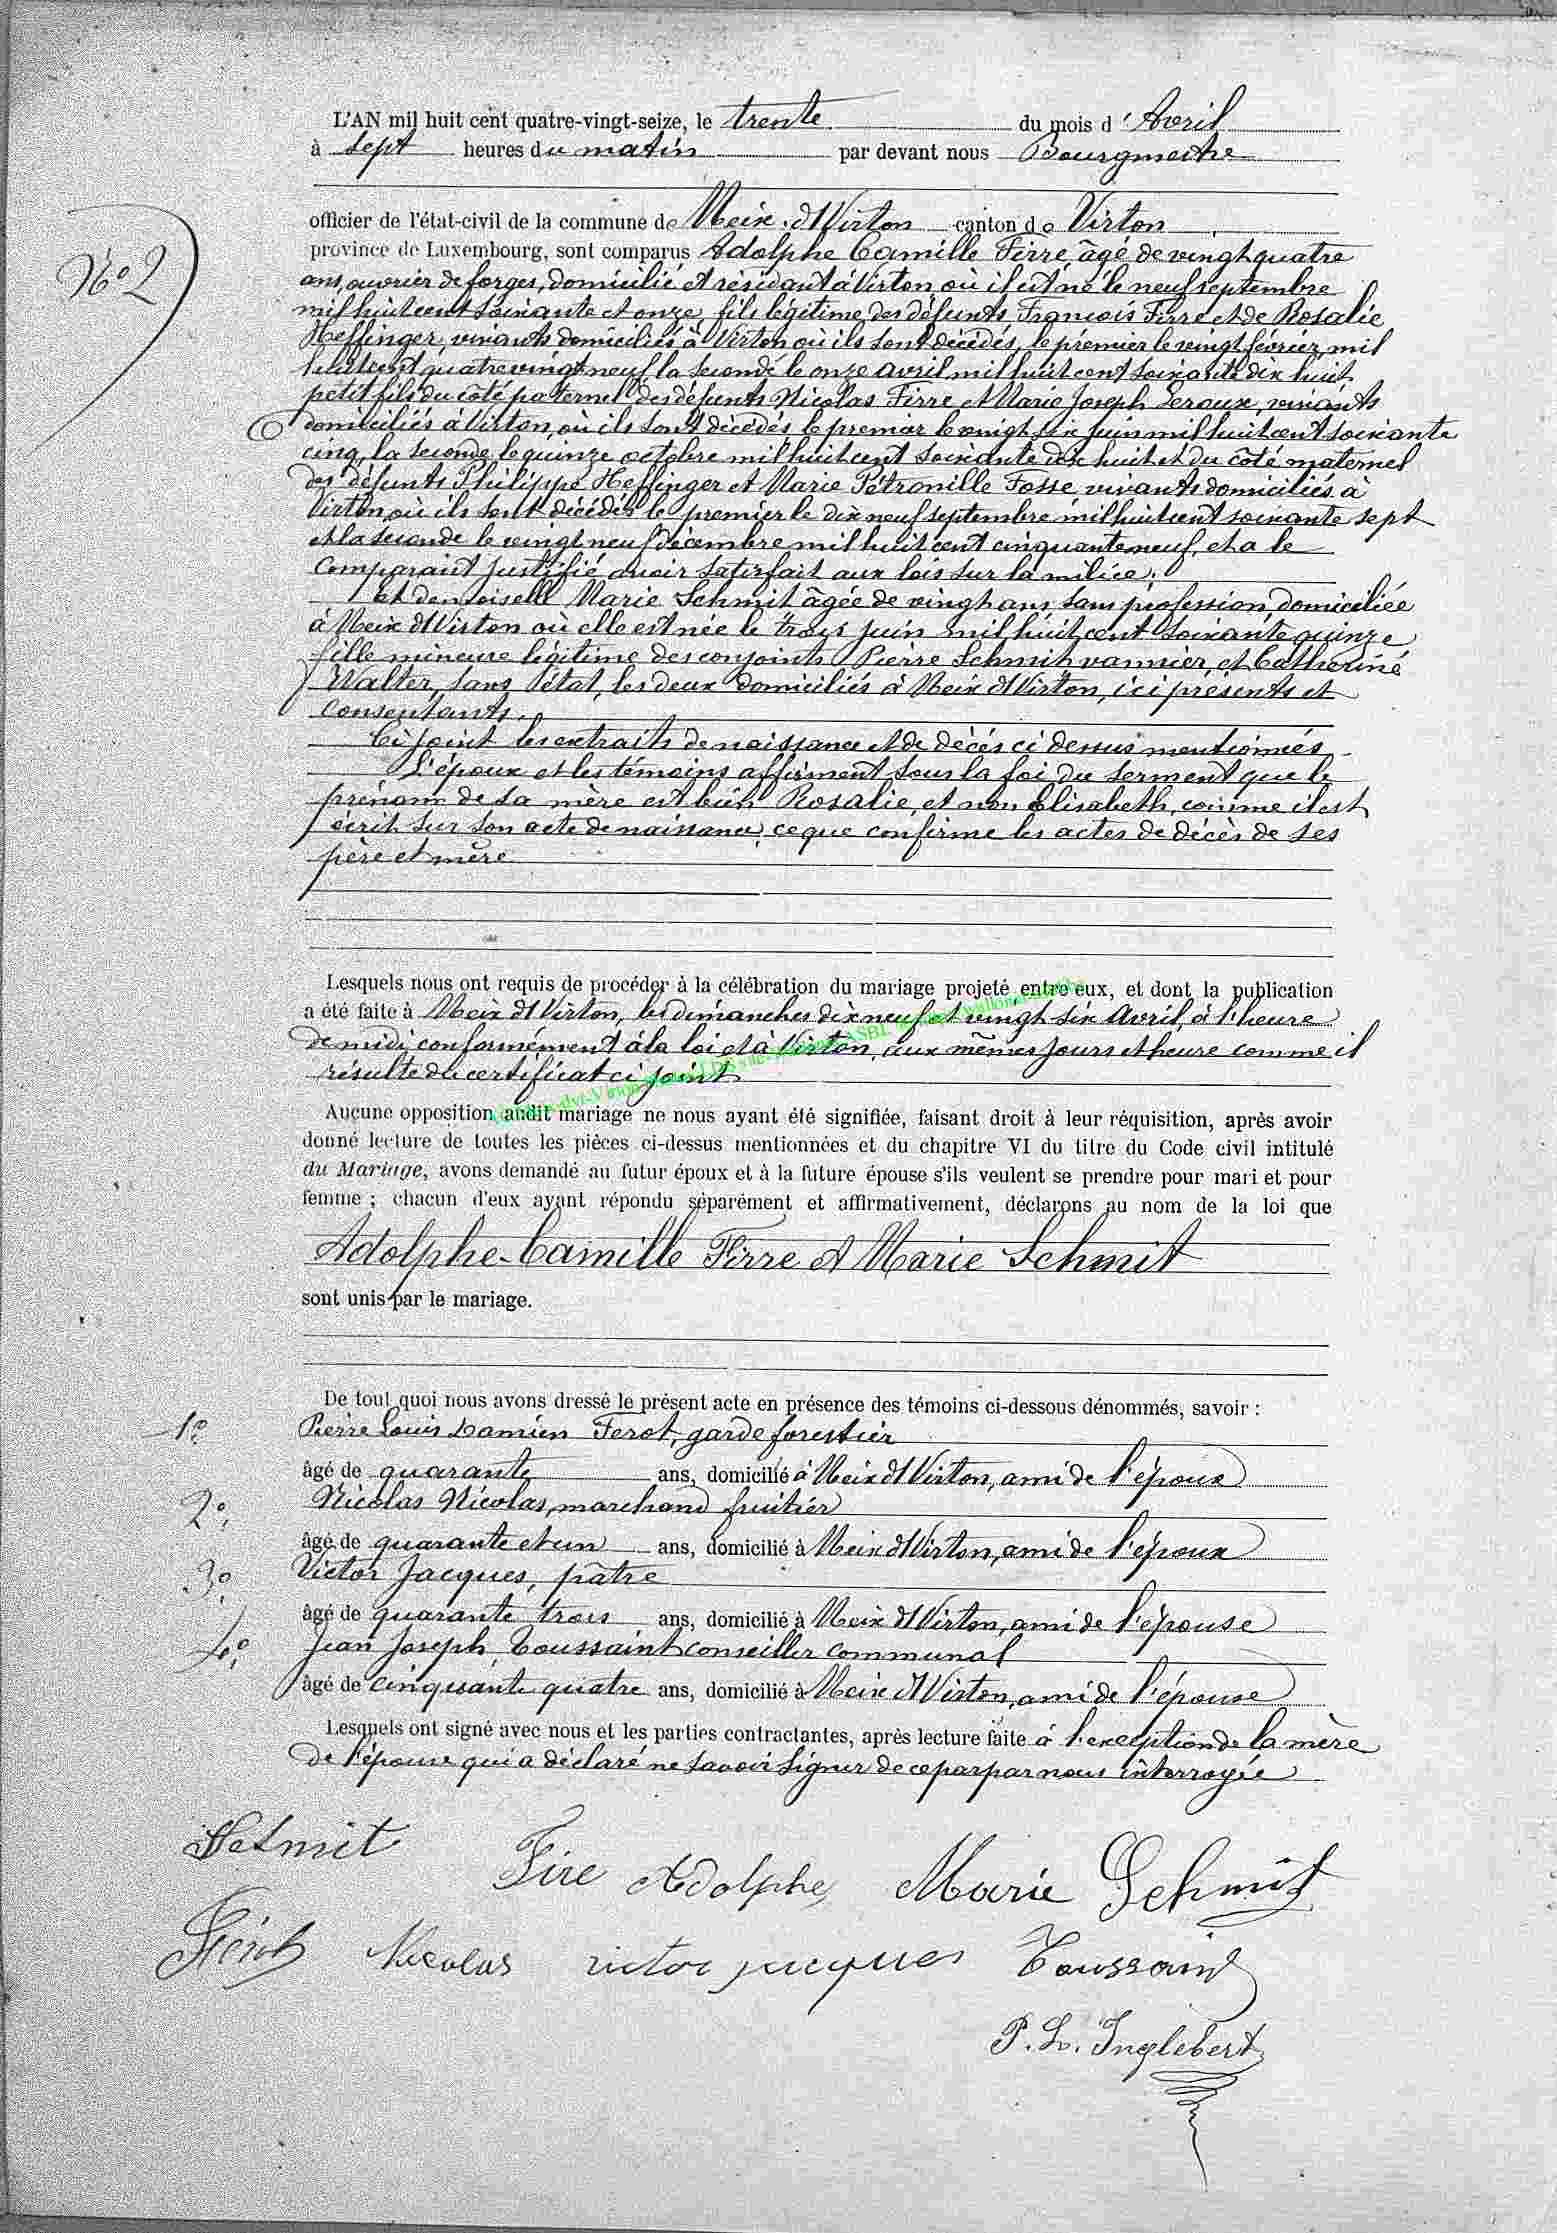 L'AN mil huit cent quatre-vingt-seize, le trente du mois d'Avril
à sept heures du matin par devant nous Bourgmestre
officier de l'état-civil de la commune de Meix dt Virton canton de Virton
province de Luxembourg, sont comparus Adolphe Camille Firre, âgé de vingt quatre
N° 2
ans, ouvrier de forges, domicilié et résidant à Virton où il est né le neuf septembre
mil huit cent soixante et onze, fils légitime des défunts François Firre et de Rosalie
Heffinger, vivants domiciliés à Virton où ils sont décédés, le premier le vingt février mil
huit cent quatre vingt neuf la seconde le onze avril mil huit cent soixante dix huit,
petit fils du côté paternel des défunts Nicolas Firre et Marie Joseph Leroux, vivants
domiciliés à Virton, où ils sont décédés, le premier le vingt six juin mil huit cent soixante
cinq, la seconde, le quinze octobre mil huit cent soixante dix huit et du côté maternel
des défunts Philippe Heffinger et Marie Pétronille Fosse, vivants domiciliés à
Virton, où ils sont décédés le premier le dix neuf septembre mil huit cent soixante sept
et la seconde le vingt neuf décembre mil huit cent cinquante neuf, et a le
comparant justifié avoir satisfait aux lois sur la milice.
et demoiselle Marie Schmit âgée de vingt ans, sans profession, domiciliée
à Meix dt Virton où elle est née le trois juin mil huit cent soixante quinze
fille mineure légitime des conjoints Pierre Schmit vannier, et Catherine
Walter, sans état, les deux domiciliés à Meix dt Virton, ici présents et
consentants.
Ci joint les extraits de naissance et de décès ci dessus mentionnés
L'époux et les témoins affirment sous la foi du serment que le
prénom de sa mère est bien Rosalie, et non Elisabeth, comme il est
écrit sur son acte de naissance, ce que confirme les actes de décès de ses
père et mère
Lesquels nous ont requis de procéder à la célébration du mariage projeté entre eux, et dont la publication
a été faite à Meix dt Virton, les dimanches dix neuf et vingt six Avril, à l'heure
de midi conformément à la loi et à Virton, aux mêmes jours et heure comme il
résulte du certificat ci joint
Aucune opposition audit mariage ne nous ayant été signifiée, faisant droit à leur réquisition, après avoir
donné lecture de toutes les pièces ci-dessus mentionnées et du chapitre VI du titre du Code civil intitulé
du Mariage, avons demandé au futur époux et à la future épouse s'ils veulent se prendre pour mari et pour
femme ; chacun d'eux ayant répondu séparément et affirmativement, déclarons au nom de la loi que
Adolphe-Camille Firre et Marie Schmit
sont unis par le mariage.
De tout quoi nous avons dressé le présent acte en présence des témoins ci-dessous dénommés, savoir :
1° Pierre Louis Damien Ferot, garde forestier
âgé de quarante ans, domicilié à Meix dt Virton, ami de l'époux
2° Nicolas Nicolas, marchand fruitier
âgé de quarante et un ans, domicilié à Meix dt Virton, ami de l'époux
3° Victor Jacques, pâtre
âgé de quarante trois ans, domicilié à Meix dt Virton, ami de l'épouse
4° Jean Joseph Toussaint conseiller communal
âgé de cinquante quatre ans, domicilié à Meix dt Virton, ami de l'épouse
Lesquels ont signé avec nous et les parties contractantes, après lecture faite à l'exception de la mère
de l'épouse qui a déclaré ne savoir signer de ce par par nous interrogée
Schmit Fire Adolphe Marie Schmit
Férot Nicolas victor jacques Toussaint
P. L. Inglebert